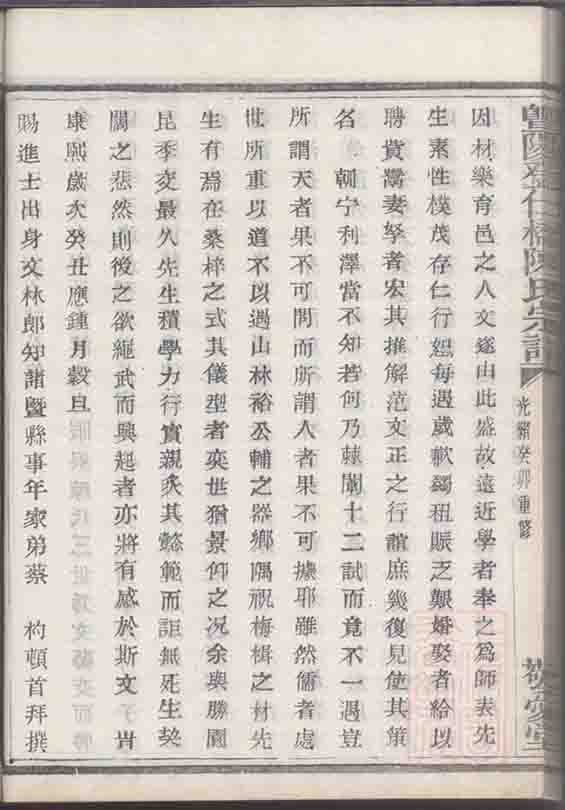 暨陽孝仁橋陳氏宗譜
光緒癸卯重修
敬愛堂
因材樂育邑之人文遂由此盛故遠近學者奉之爲師表先
生素性樸茂存仁行恕每遇歲歉蠲租賑乏艱婚娶者給以
聘貲鬻妻孥者宏其推解范文正之行誼庶幾復見使其策
名 朝宁利澤當不知若何乃棘闈十二試而竟不一遇豈
所謂天者果不可問而所謂人者果不可據耶雖然儒者處
世所重以道不以遇山林裕公輔之器鄉隅祝梅楫之材先
生有焉在桑梓之式其儀型者奕世猶景仰之况余與勝園
昆季交最久先生積學力行實親炙其懿範而詎無死生契
闊之悲然則後之欲繩武而興起者亦將有感於斯文 旹
康熙歲次癸丑應鍾月穀旦
賜進士出身文林郎知諸暨縣事年家弟蔡 杓頓首拜撰